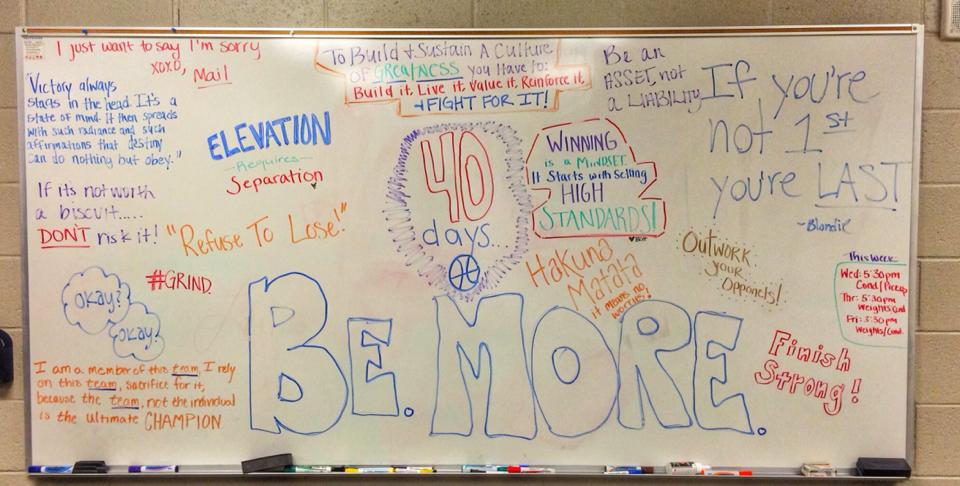 I just want to say I'm sorry
xoxo,
Mail
"Victory always
starts in the head. It's a
state of mind. It then spreads
with such radiance and such
affirmations that destiny
can do nothing but obey."
ELEVATION
-Requires-
Separation
If its not worth
a biscuit.....
DON'T risk it!
"Refuse To Lose!"
#GRIND
Okay?
Okay.
I am a member of this team, I rely
on this team, sacrifice for it,
because the team, not the individual
is the ultimate CHAMPION
To Build & Sustain A Culture
OF GREATNESS you Have to:
Build it, Live it, Value it, Reinforce it,
& FIGHT FOR IT!
40
days...
WINNING
is a MINDSET.
It Starts with Selling
HIGH
STANDARDS!
Be an
ASSET, not
a LIABILITY
If you're
not 1st
you're LAST
-Blondie
Hakuna
Matata
it means no
worries!
OUTWORK
your
Opponets!
This Week
Wed: 5:30pm
Cond/Pickup
Thr: 5:30pm
Weights/Cond
Fri: 3:30pm
Weights/Cond.
Finish
Strong!
BE. MORE.